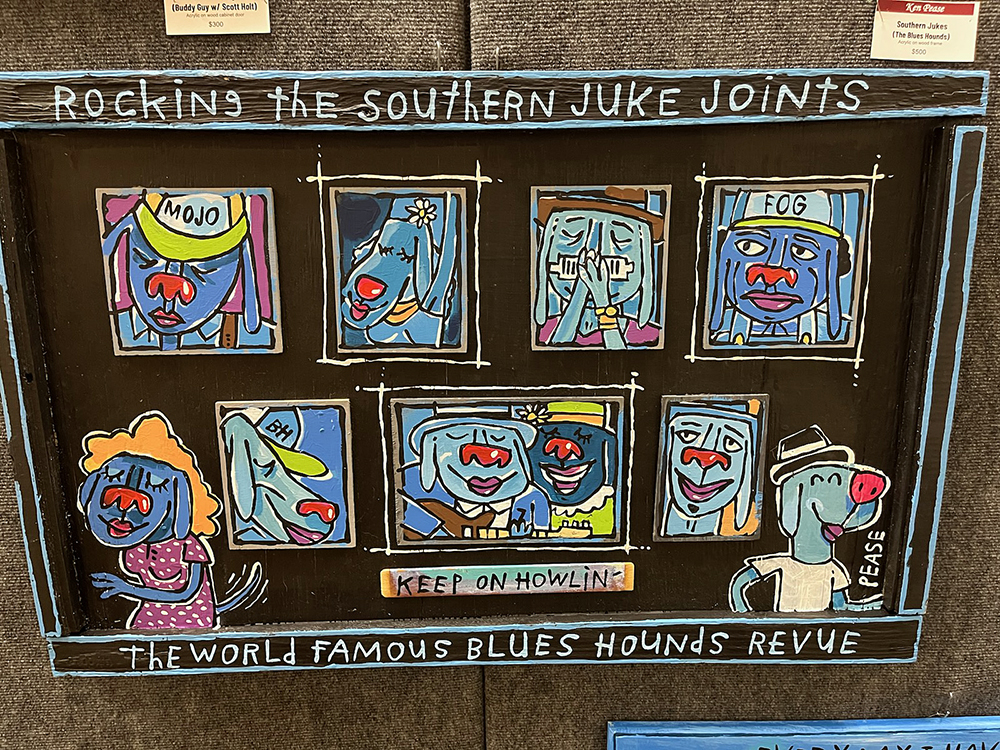 (Buddy Guy w/ Scott Holt)
Acrylic on wood cabinet door
$300
Ken Pease
Southern Jukes
(The Blues Hounds)
Acrylic on wood frame
$500
ROCKING the SOUthERN JUKE JOINTS
MOJO
FOG
BH
KEEP ON HOWLIN-
PEASE
thE WORLd FAMOUS BLUES HOUNdS REVUE